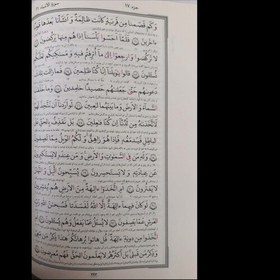 جزء ١٧
سورة الأنبياء ٢١
وَكَمْ قَصَمْنَا مِن قَرْيَةٍ كَانَتْ ظَالِمَةً وَأَنشَأْنَا بَعْدَهَا قَوْمًا
ءَاخَرِينَ ۝ فَلَمَّآ أَحَسُّوا۟ بَأْسَنَآ إِذَا هُم مِّنْهَا يَرْكُضُونَ ۝
لَا تَرْكُضُوا۟ وَٱرْجِعُوٓا۟ إِلَىٰ مَآ أُتْرِفْتُمْ فِيهِ وَمَسَٰكِنِكُمْ لَعَلَّكُمْ
تُسْـَٔلُونَ ۝ قَالُوا۟ يَٰوَيْلَنَآ إِنَّا كُنَّا ظَٰلِمِينَ ۝ فَمَا زَالَت تِّلْكَ
دَعْوَىٰهُمْ حَتَّىٰ جَعَلْنَٰهُمْ حَصِيدًا خَٰمِدِينَ ۝ وَمَا خَلَقْنَا
ٱلسَّمَآءَ وَٱلْأَرْضَ وَمَا بَيْنَهُمَا لَٰعِبِينَ ۝ لَوْ أَرَدْنَآ أَن نَّتَّخِذَ لَهْوًا
لَّٱتَّخَذْنَٰهُ مِن لَّدُنَّآ إِن كُنَّا فَٰعِلِينَ ۝ بَلْ نَقْذِفُ بِٱلْحَقِّ عَلَى
ٱلْبَٰطِلِ فَيَدْمَغُهُۥ فَإِذَا هُوَ زَاهِقٌ وَلَكُمُ ٱلْوَيْلُ مِمَّا تَصِفُونَ ۝
وَلَهُۥ مَن فِى ٱلسَّمَٰوَٰتِ وَٱلْأَرْضِ وَمَنْ عِندَهُۥ لَا يَسْتَكْبِرُونَ
عَنْ عِبَادَتِهِۦ وَلَا يَسْتَحْسِرُونَ ۝ يُسَبِّحُونَ ٱلَّيْلَ وَٱلنَّهَارَ
لَا يَفْتُرُونَ ۝ أَمِ ٱتَّخَذُوٓا۟ ءَالِهَةً مِّنَ ٱلْأَرْضِ هُمْ يُنشِرُونَ ۝
لَوْ كَانَ فِيهِمَآ ءَالِهَةٌ إِلَّا ٱللَّهُ لَفَسَدَتَا فَسُبْحَٰنَ ٱللَّهِ رَبِّ
ٱلْعَرْشِ عَمَّا يَصِفُونَ ۝ لَا يُسْـَٔلُ عَمَّا يَفْعَلُ وَهُمْ يُسْـَٔلُونَ ۝ أَمِ
ٱتَّخَذُوا۟ مِن دُونِهِۦٓ ءَالِهَةً قُلْ هَاتُوا۟ بُرْهَٰنَكُمْ هَٰذَا ذِكْرُ مَن مَّعِىَ
وَذِكْرُ مَن قَبْلِى بَلْ أَكْثَرُهُمْ لَا يَعْلَمُونَ ٱلْحَقَّ فَهُم مُّعْرِضُونَ ۝
٣٢٣